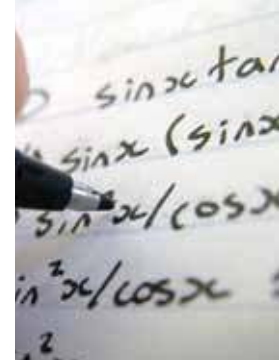 sinx tan
sinx (sinx
sin²x/cosx
in²x/cosx
2